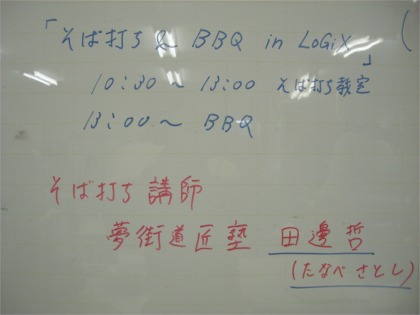 「そば打ち & BBQ in LoGiX」
10:30 ~ 13:00 そば打ち教室
13:00 ~ BBQ
そば打ち 講師
夢街道匠塾 田邊哲
(たなべ さとし)